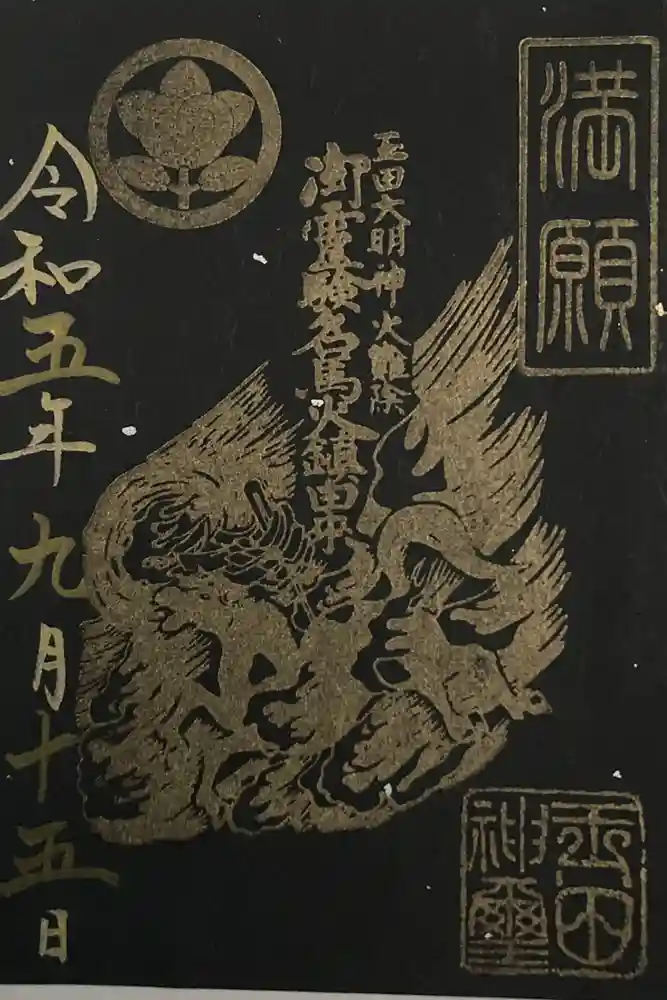 満願
玉田大明神火難除
御霊験名馬火鎮由来
令和五年九月十五日
玉田
神璽